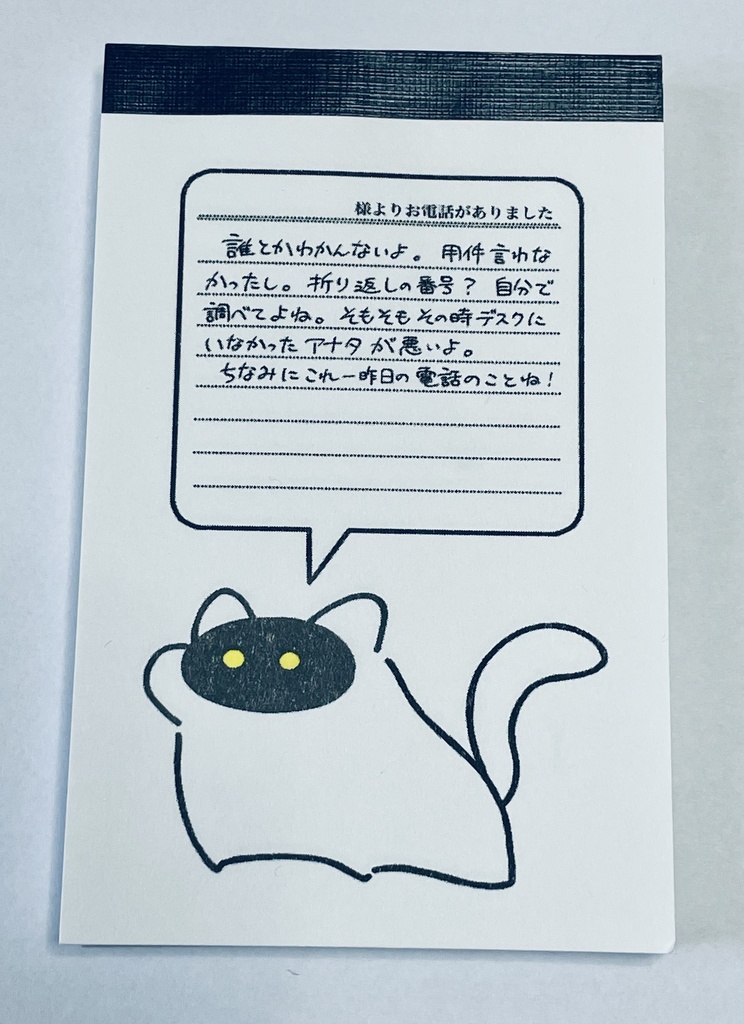 様よりお電話がありました
誰とかわかんないよ。用件言わな
かったし。折り返しの番号？自分で
調べてよね。そもそもその時デスクに
いなかったアナタが悪いよ。
ちなみにこれ一昨日の電話のことね！